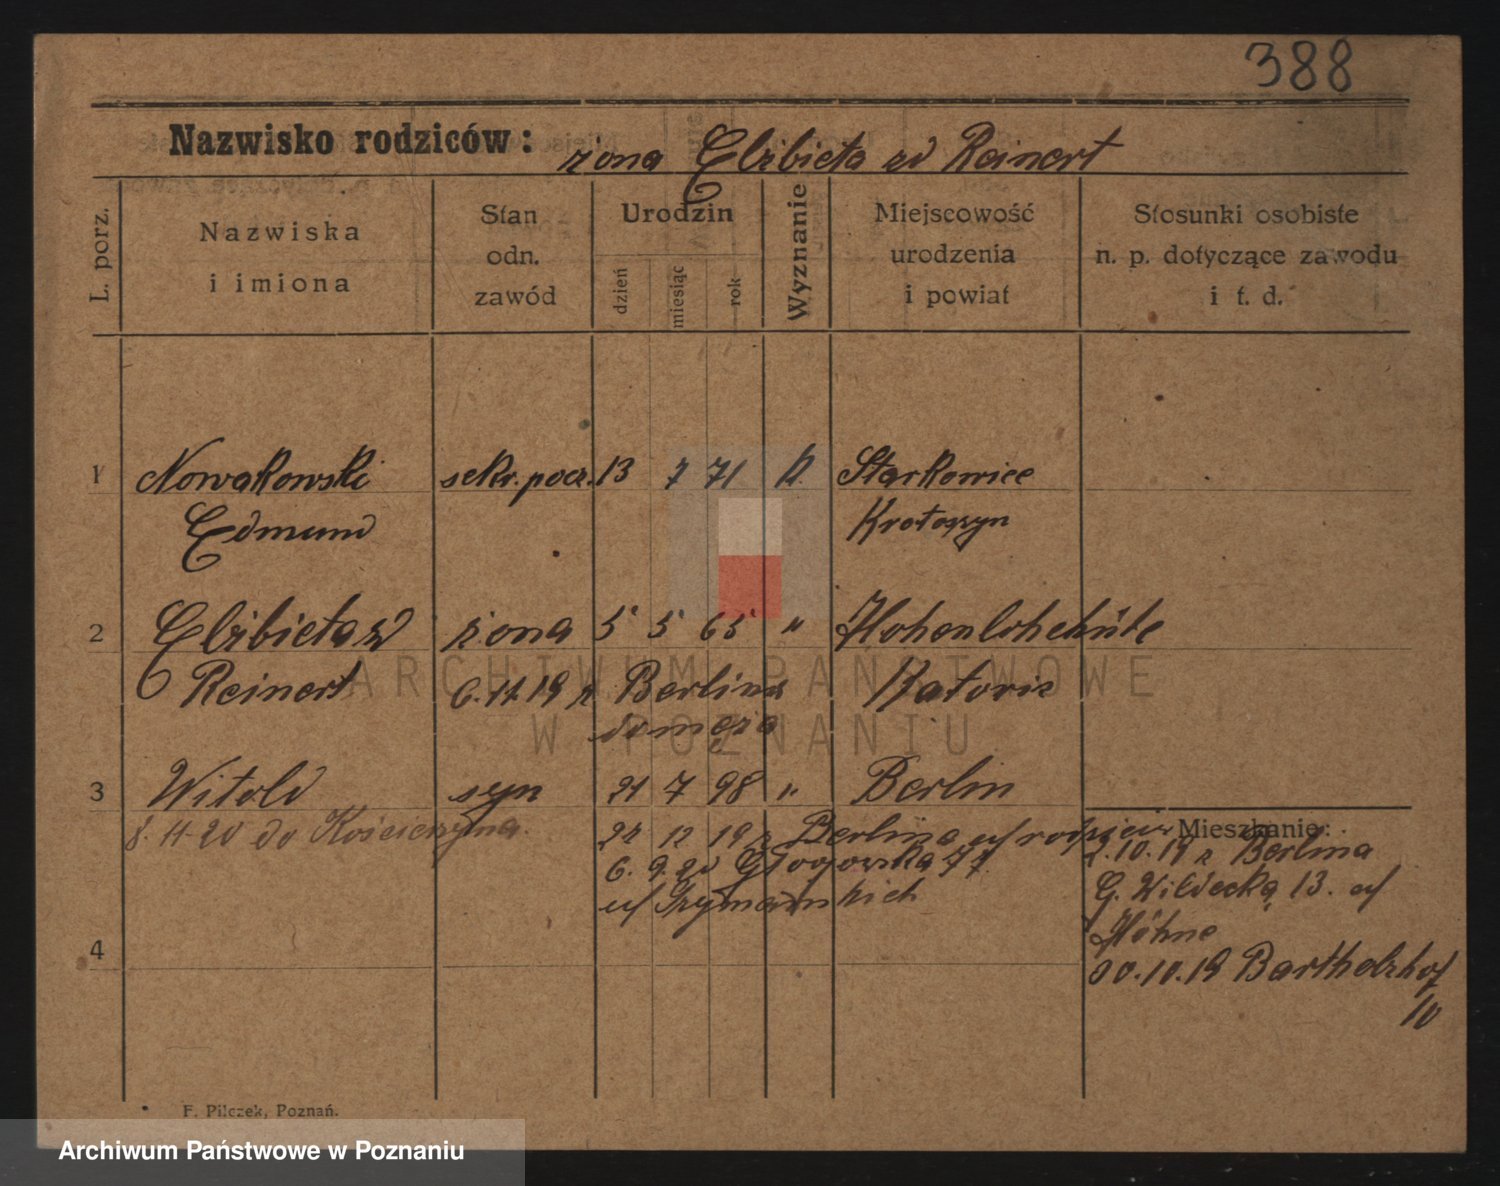 388
Nazwisko rodziców: żona Elżbieta zd Reinert
L. porz.
Nazwiska i imiona
Stan odn. zawód
Urodzin
dzień
miesiąc
rok
Wyznanie
Miejscowość urodzenia i powiat
Stosunki osobiste n. p. dotyczące zawodu i t. d.
1 Nowakowski sekr. pocz. 13 7 71 k. Starkowiec
Edmund Krotoszyn
2 Elżbieta zd żona 5 5 65 " Hohenlohehütte
Reinert 6.11.19 z Berlina Katowic
do męża
3 Witold syn 21 7 98 " Berlin
8.11.20 do Kościerzyna.
22 12 19 z Berlina u/ rodziców
6. 9. 20 Głogowska 77.
u/ Szymańskich
Mieszkanie:
2.10.19 z Berlina
G. Wildecką 13. u/
Höhne
30.10.19 Bartholzhof
10
4
F. Pilczek, Poznań.
ARCHIWUM PAŃSTWOWE
W POZNANIU
Archiwum Państwowe w Poznaniu